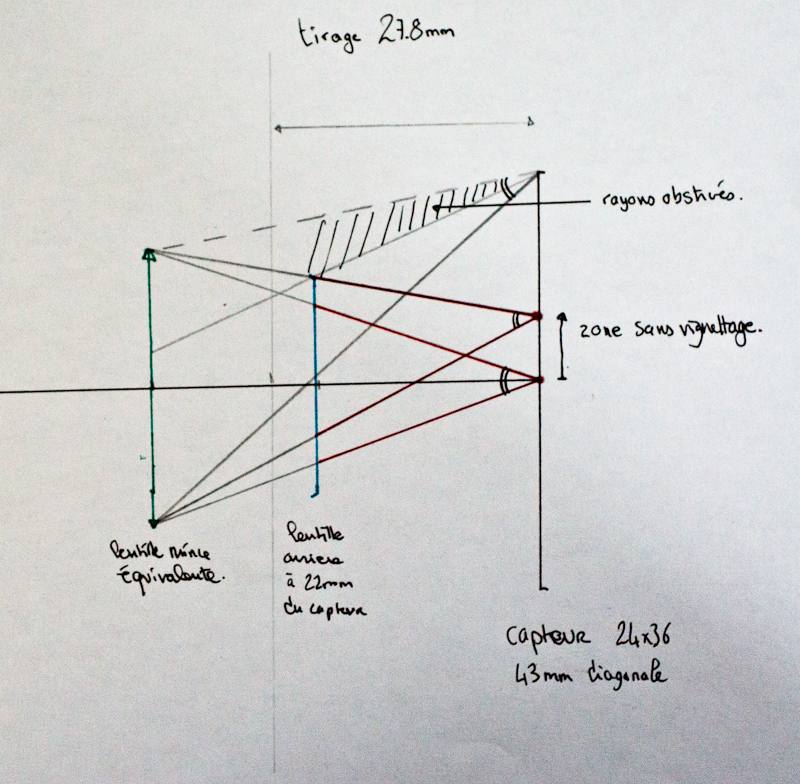 tirage 27.8mm
rayons obstrués.
zone sans vignettage.
lentille mince
équivalente.
lentille
arriere
à 22mm
du capteur
capteur 24x36
43mm diagonale